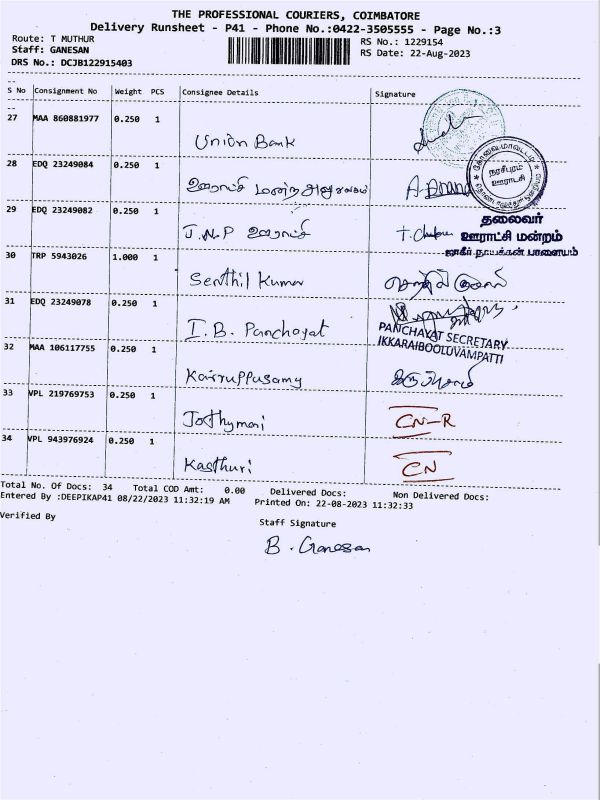 THE PROFESSIONAL COURIERS, COIMBATORE
Delivery Runsheet - P41 - Phone No.:0422-3505555 - Page No.:3
Route: T MUTHUR
RS No.: 1229154
Staff: GANESAN
RS Date: 22-Aug-2023
DRS No.: DCJB122915403
S No Consignment No Weight PCS Consignee Details Signature
27 MAA 860881977 0.250 1
Union Bank
28 EDQ 23249084 0.250 1
ஊராட்சி மன்ற அலுவலகம் A. Anand
நரசீபுரம்
ஊராட்சி
29 EDQ 23249082 0.250 1
J.N.P ஊராட்சி
தலைவர்
ஊராட்சி மன்றம்
ஜாகீர் நாயக்கன் பாளையம்
30 TRP 5943026 1.000 1
Senthil Kumar செந்தில்குமார்
31 EDQ 23249078 0.250 1
I.B. Panchayat
PANCHAYAT SECRETARY
IKKARAIBOOLUVAMPATTI
32 MAA 106117755 0.250 1
Karruppusamy
33 VPL 219769753 0.250 1
Jothymani CN-R
34 VPL 943976924 0.250 1
Kasthuri CN
Total No. Of Docs: 34 Total COD Amt: 0.00 Delivered Docs: Non Delivered Docs:
Entered By :DEEPIKAP41 08/22/2023 11:32:19 AM Printed On: 22-08-2023 11:32:33
Verified By
Staff Signature
B. Ganesan